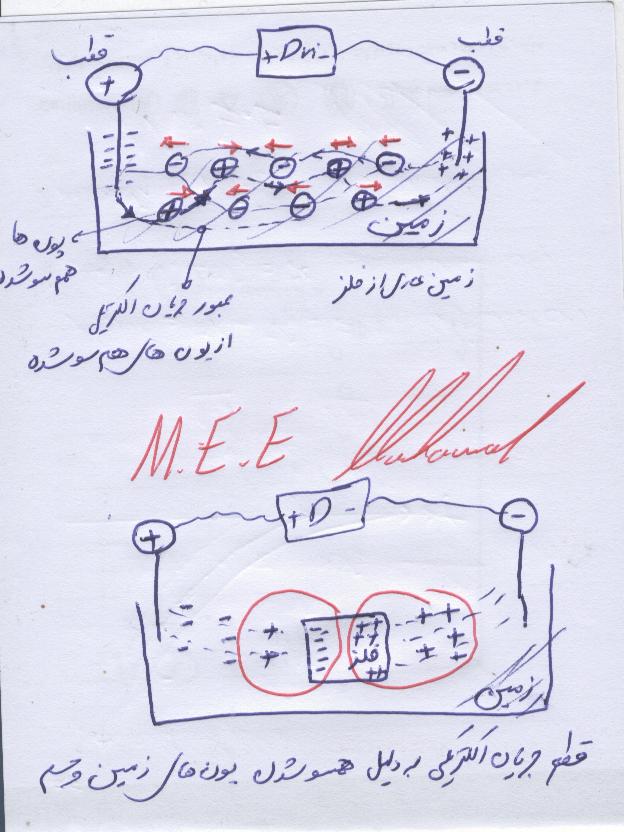 قطب
قطب
+
+Dri-
-
زمین
یون ها
هم سو شدن
عبور جریان الکتریکی
از یون های هم سو شده
زمین عاری از فلز
M.E.E
+
+D-
-
فلز
زمین
قطع جریان الکتریکی به دلیل همسو شدن یون های زمین و جسم